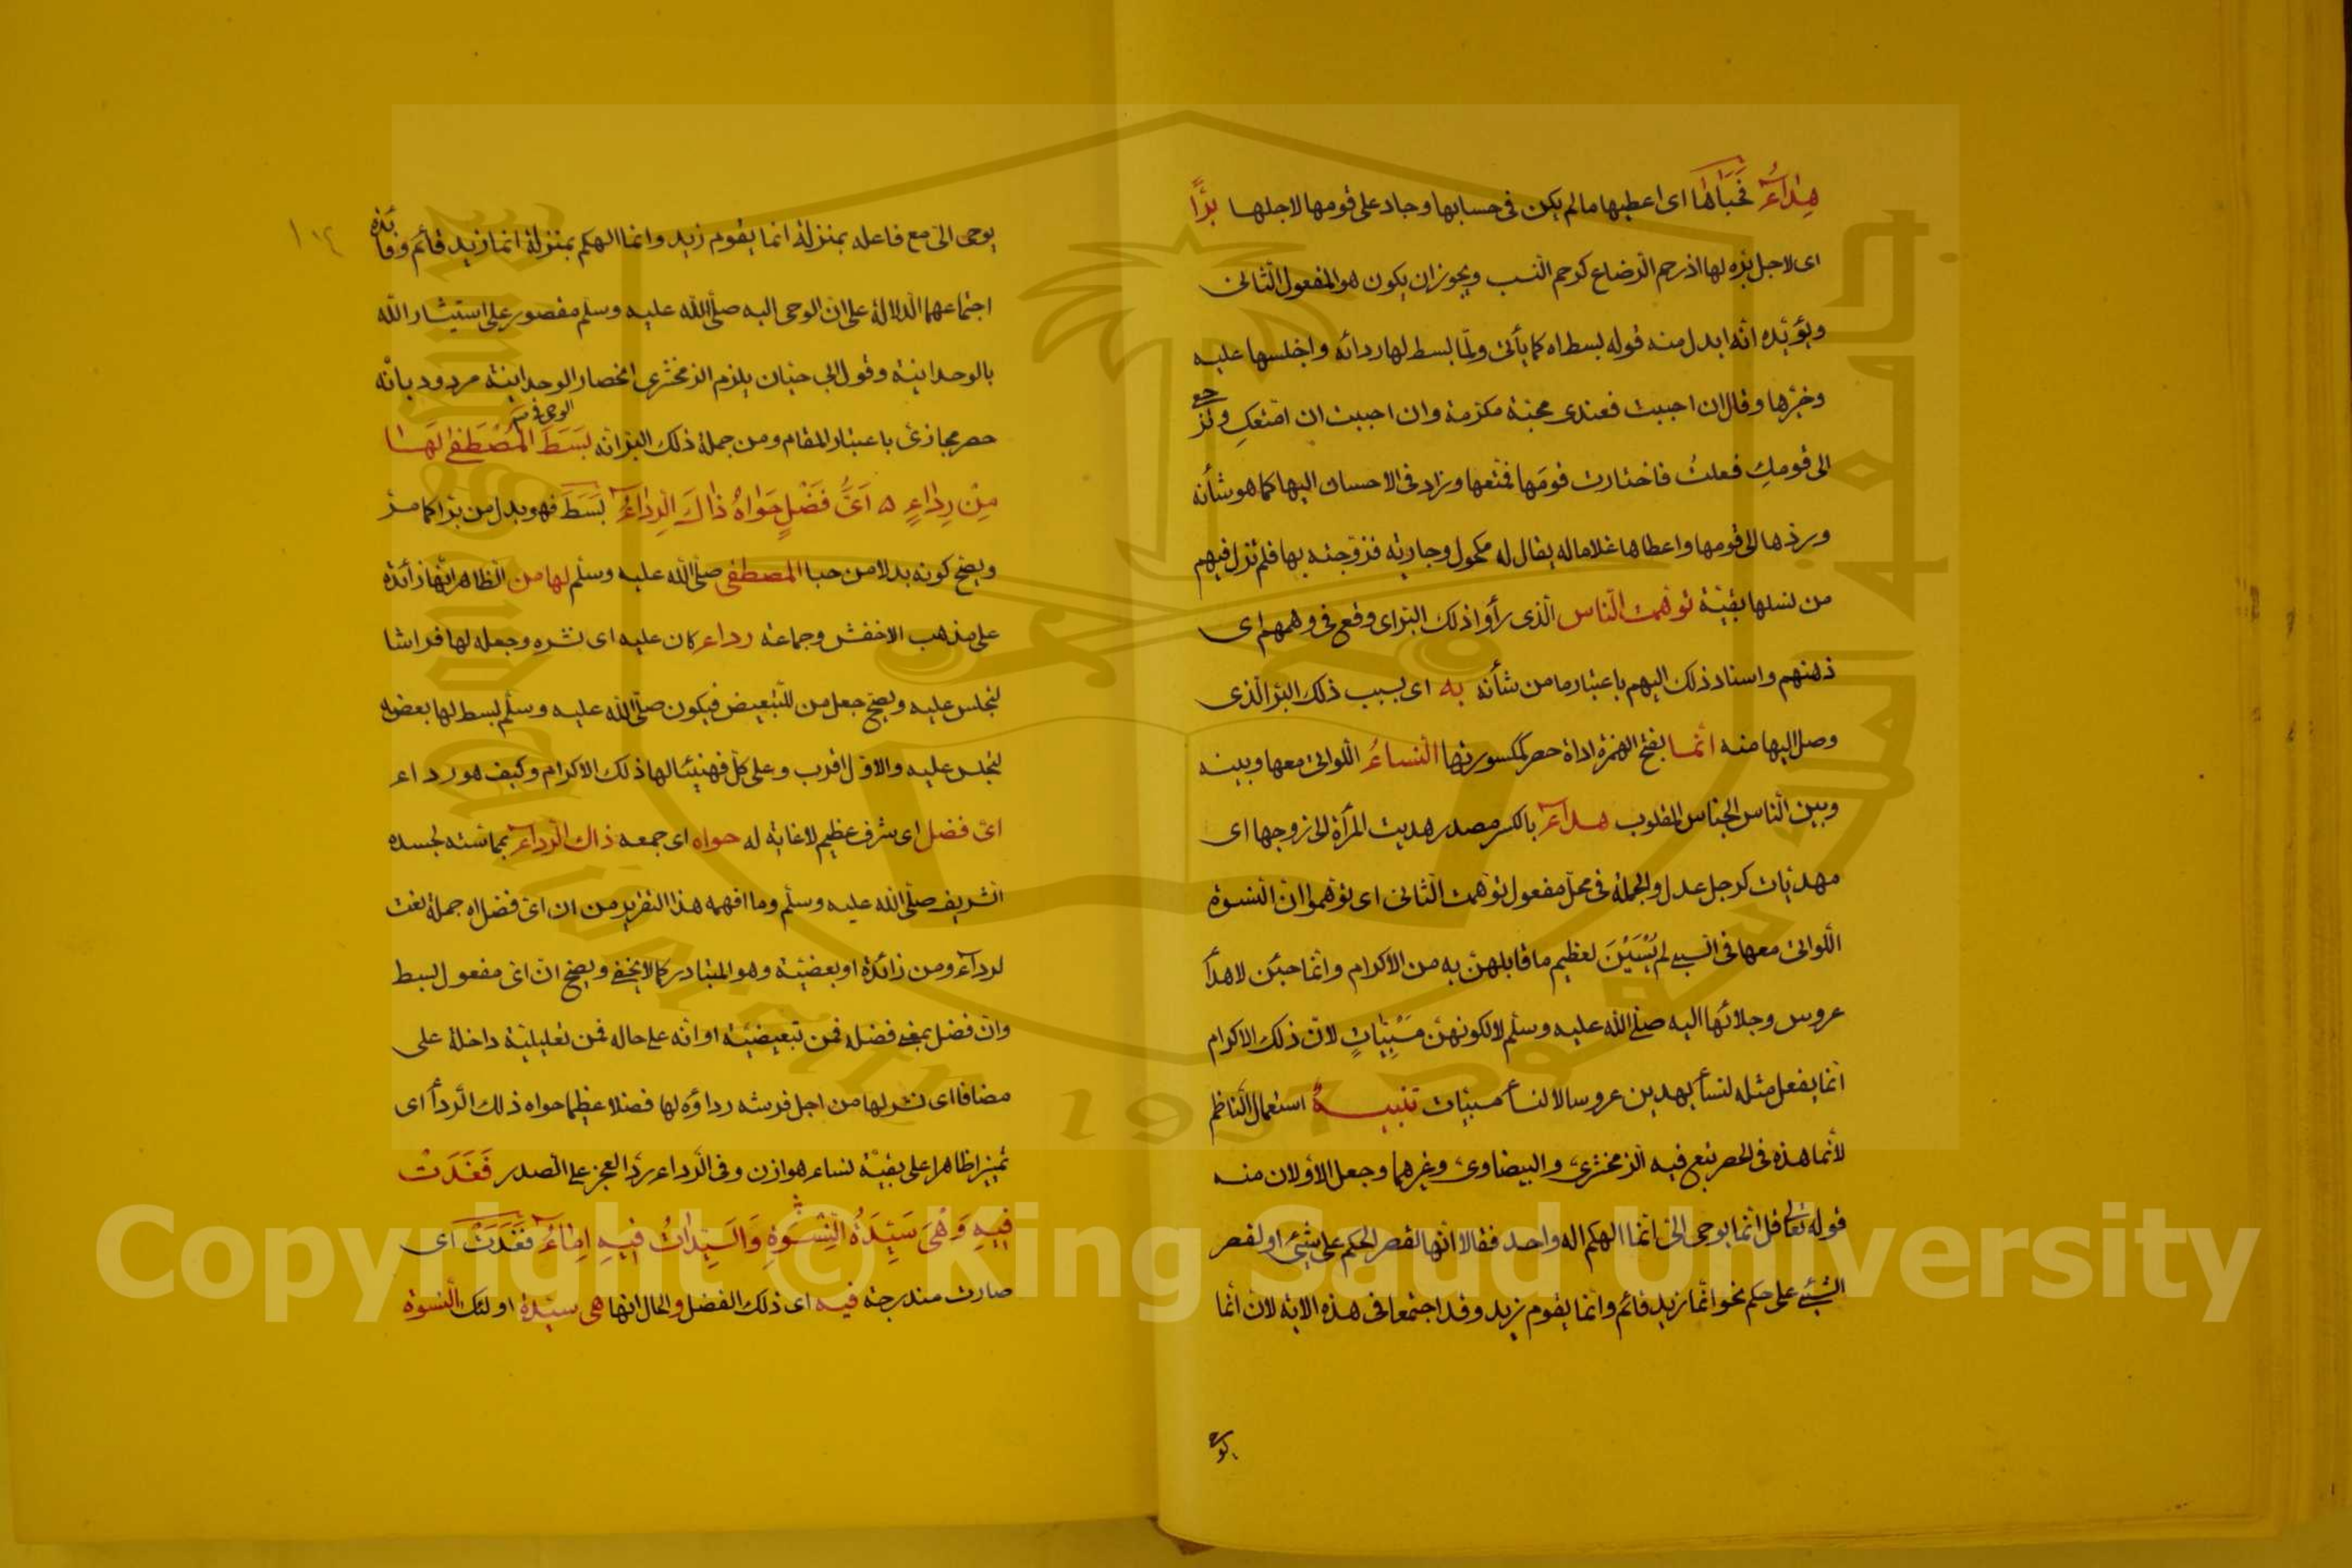 هِدَاءُ فَحَبَاهَا اى اعطيها مالم يكن فى حسابها وجاد على قومها لاجلها برًّا
اى لاجل بره لها اذ رحم الرضاع كرحم النسب ويجوز ان يكون هو المفعول الثانى
ويؤيده انه ابدل منه قوله بسط اه كما يأتى ولما بسط لها ردائه واجلسها عليه
وخيرها وقال ان احببت فعندى محببة مكرمة وان احببت ان امتعكِ وترجع
الى قومكِ فعلتُ فاختارت قومَها فمتعها وزاد فى الاحسان اليها كما هو شأنه
وردها الى قومها واعطاها غلاما له يقال له مكحول وجارية فزوجته بها فلم تزل فيهم
من نسلها بقيّة توهمت الناس الّذى رأوا ذلك البر اى وقع فى وهمهم اى
ذهنهم واسناد ذلك اليهم باعتبار ما من شأنه به اى بسبب ذلك البرّ الّذى
وصل اليها منه انما بفتح الهمزة اداة حصر كمكسورتها النساءُ اللّواتى معها وبينه
وبين النّاس الجناس المقلوب هداءُ بالكسر مصدر هديت المرأة الى زوجها اى
مهديّات كرجل عدل والجملة فى محلّ مفعول توهمت الثانى اى توهموا انّ النسوة
اللّواتى معها فى السبى لم يُسْبَيْنَ لعظيم ما قابلهنّ به من الاكرام وانّما جئن لاهدأ
عروس وجلائها اليه صلّى اللّه عليه وسلم لا لكونهنّ مَسْبِيّاتٍ لانّ ذلك الاكرام
انّما يفعل مثله لنسأ يهدين عروسا لا لنسأ مسبيّات تنبيـــه استعمال النّاظم
لأنما هذه فى الحصر تبع فيه الزمخشرىّ والبيضاوىّ وغيرهما وجعل الاوّلان منه
قوله تعالى قل انّما يوحى الىّ انّما الهكم اله واحد فقالا انّها لقصر الحكم على شئ او لقصر
الشّئ على حكم نحو انّما زيد قائم وانّما يقوم زيد وقد اجتمعا فى هذه الاية لانّ انّما
يوحى الىّ مع فاعله بمنزلة انما يقوم زيد وانما الهكم بمنزلة انما زيد قائم وفائدة
اجتماعهما الدّلالة على انّ الوحى اليه صلّى اللّه عليه وسلّم مقصور على استيثار اللّه
بالوحدانيّة وقول ابى حيان يلزم الزمخشرى انحصار الوحى فى الوحدانيّة مردود بانّه
حصر مجازىّ باعتبار المقام ومن جملة ذلك البرّ انّه بَسَطَ المُصْطَفٰى لَهَا
مِنْ رِدَاءٍ ه اَىُّ فَضْلٍ حَوَاهُ ذَاكَ الرِّدَاءُ بَسَطَ فهو بدل من برّا كما مرّ
ويصحّ كونه بدلا من حبا المصطفى صلّى اللّه عليه وسلّم لها من الظاهر انّها زائدة
على مذهب الاخفش وجماعة رداء كان عليه اى نشره وجعله لها فراشا
لتجلس عليه ويصحّ جعل من للتّبعيض فيكون صلّى اللّه عليه وسلّم بسط لها بعضه
لتجلس عليه والاوّل اقرب وعلى كلّ فهنيئا لها ذلك الاكرام وكيف هو رداء
اىّ فضل اى شرف عظيم لا غاية له حواه اى جمعه ذاك الرداء بمماسّته لجسده
الشّريف صلّى اللّه عليه وسلّم وما افهمه هذا التقرير من ان اىّ فضل اه جملة نعت
لرداء ومن زائدة او بعضيّة وهو المتبادر كما لا يخفى ويصحّ انّ اىّ مفعول بسط
وانّ فضل بمعنى فضله فمن تبعيضيّة او انّه على حاله فمن تعليليّة داخلة على
مضاف اى نشر لها من اجل فرشه رداؤه لها فضلا عظيما حواه ذلك الرّدأ اى
تميز اظاهرا على بقيّة نساء هوازن وفى الرّداء ردّ العجز على الصّدر فَغَدَتْ
فِيهِ وَهْىَ سَيِّدَةُ النِّسْوَةِ وَالسَّيِّدَاتُ فِيهِ اِمَاءُ فَغَدَتْ اى
صارت مندرجة فيه اى ذلك الفضل والحال انها هى سيّدة اولئك النسوة